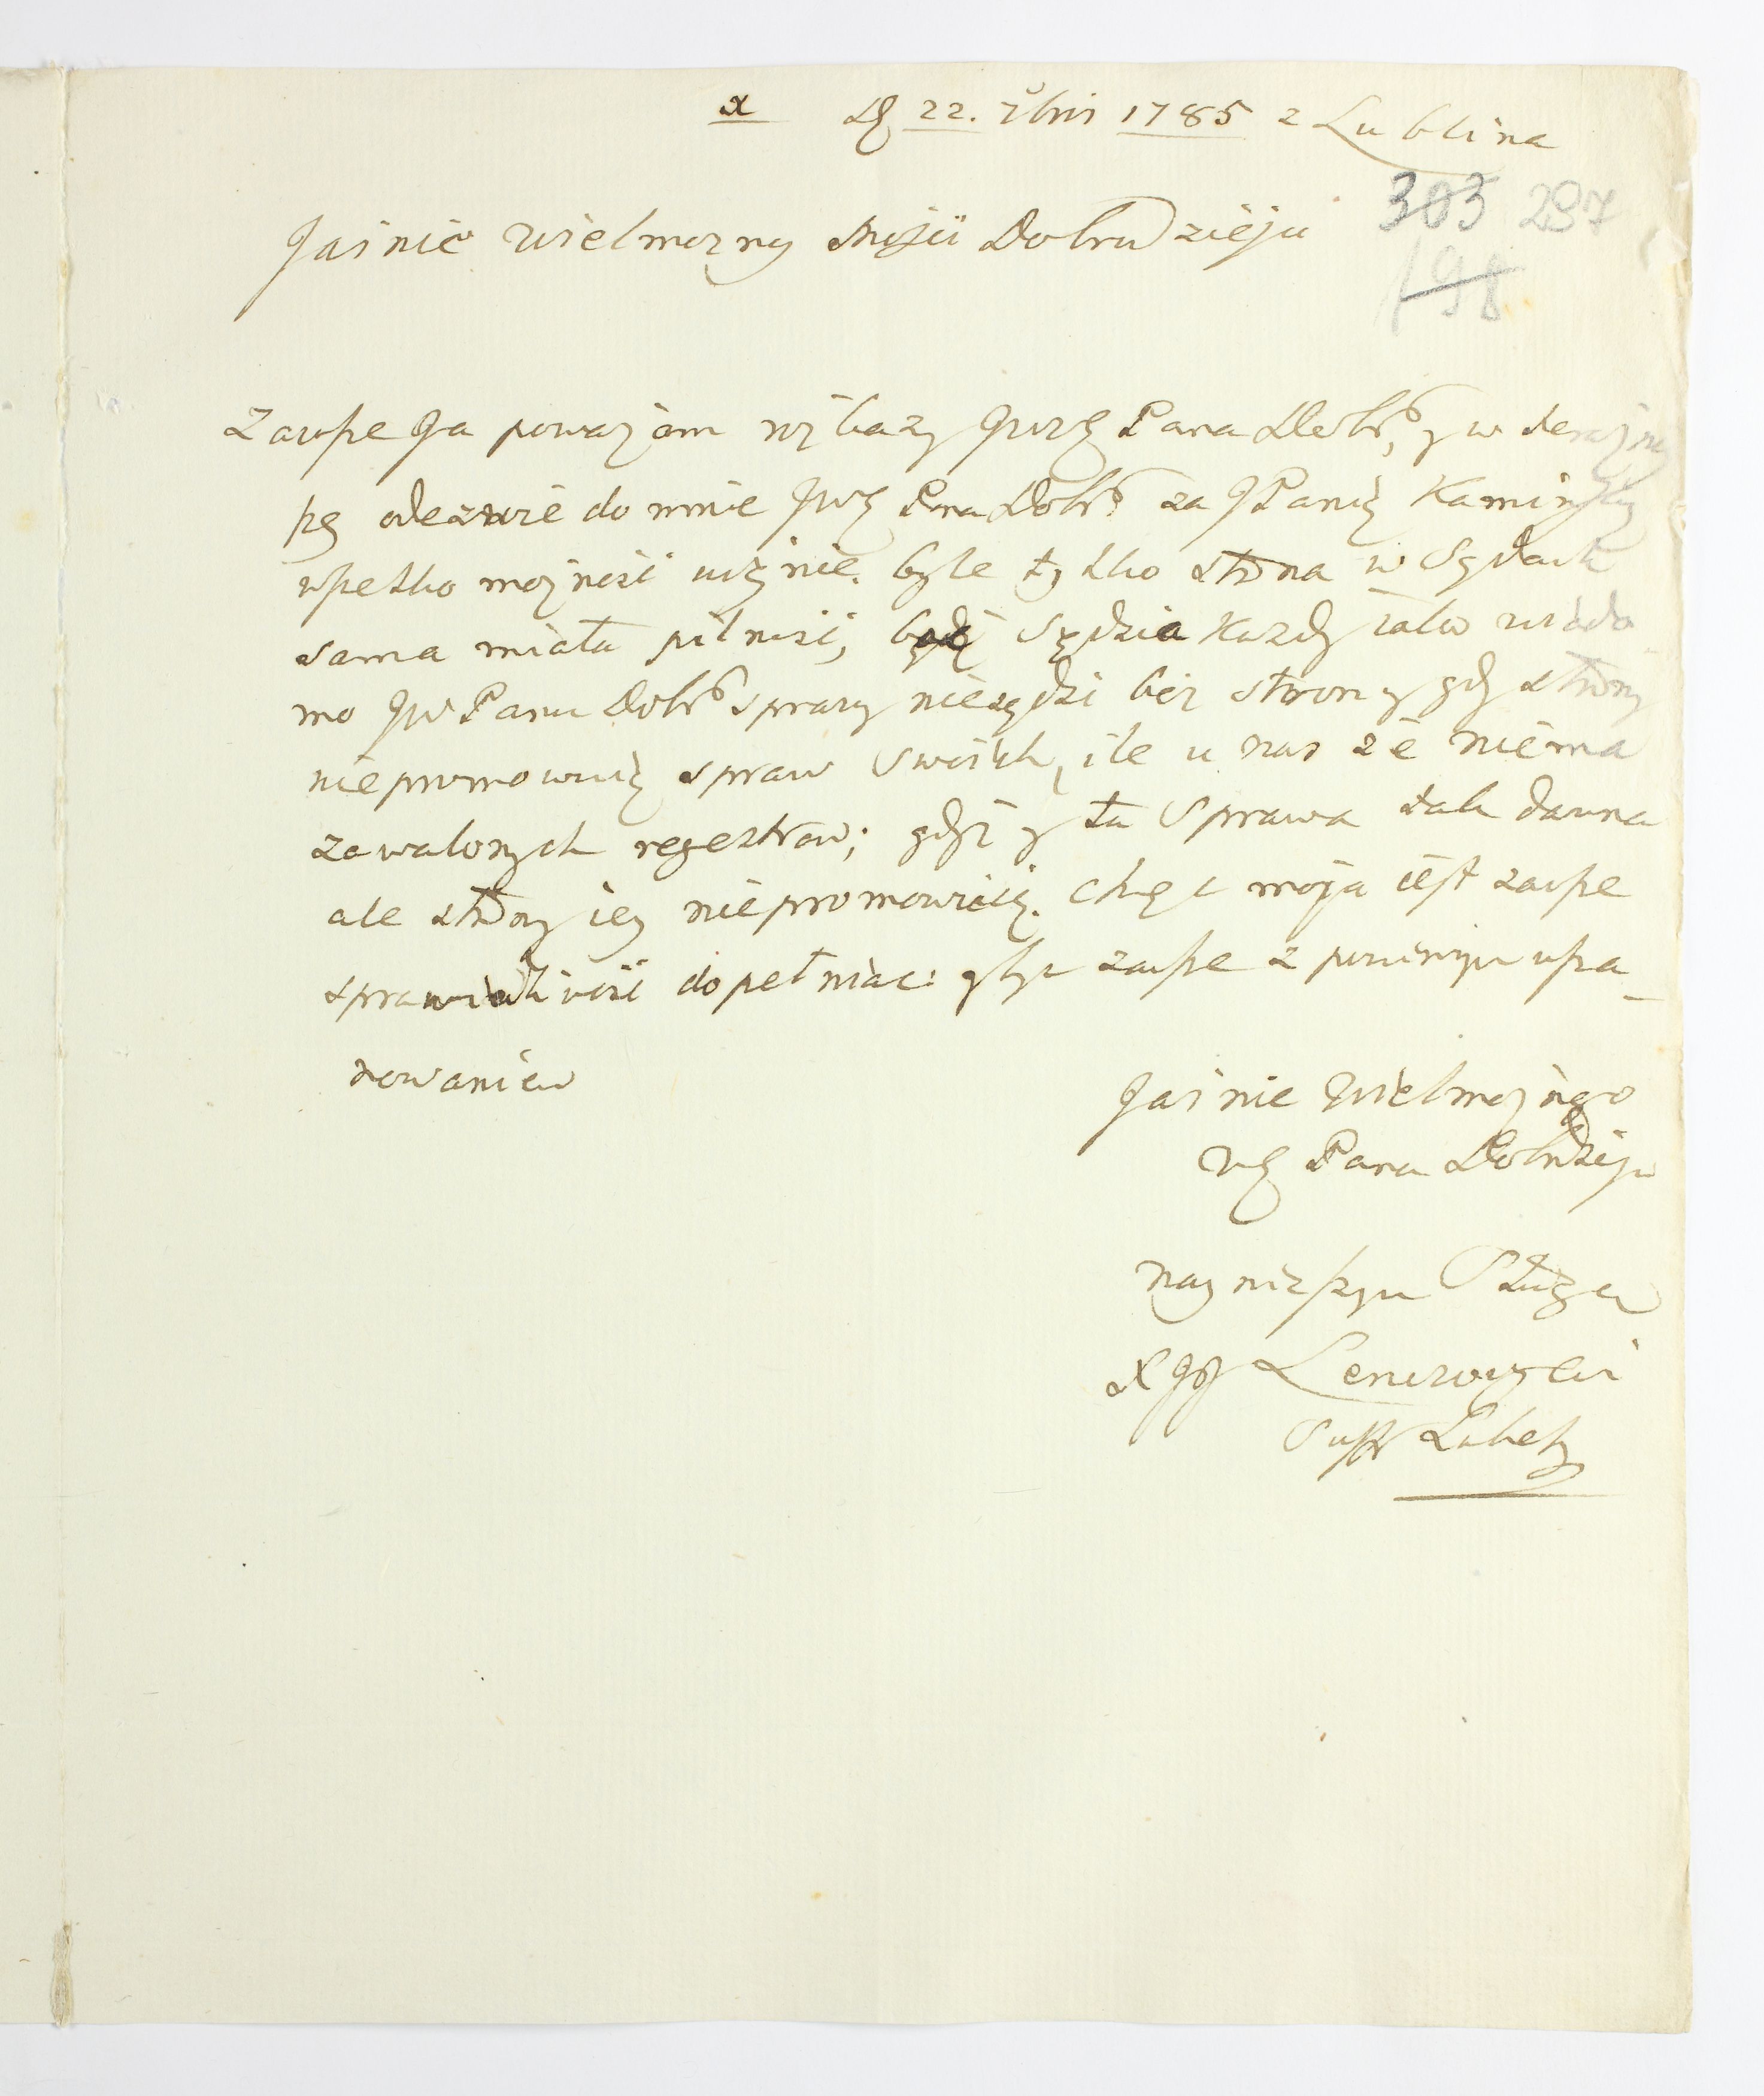 x D 22. 7bris 1785 z Lublina
303 297
198
Jaśnie Wielmozny Mości Dobrodzieju
Zawsze Ja powazam wyrazy JWWę Pana Dobr, y w
odezwie do mnie JWę Pana Dobr za JPanią Kamińską
wszelko mozność uczynie. byle tylko strona w Sądach
sama miała pilność, Sędzia Kazdy iako wiado
mo JW Panu Dobr sprawy niesądzi bez strony gdy strony
niepromowuią spraw Swoich, ile u nas ze niema
zawalonych regestrow; gdyż y ta Sprawa tak dawna
ale strony iey niepromowuią. Chęć moja iest zawsze
sprawiedliwość dopełniac: zawsze z sza_
nowaniem
Jaśnie Wielmoznego
Wę Pana Dobrodzieja
nayniższym Sługą
X Lenczowski
Suffr Lubel